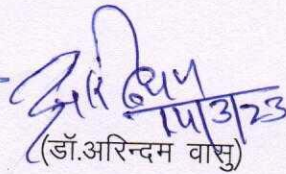 14/3/23
(डॉ.अरिन्दम वासु)